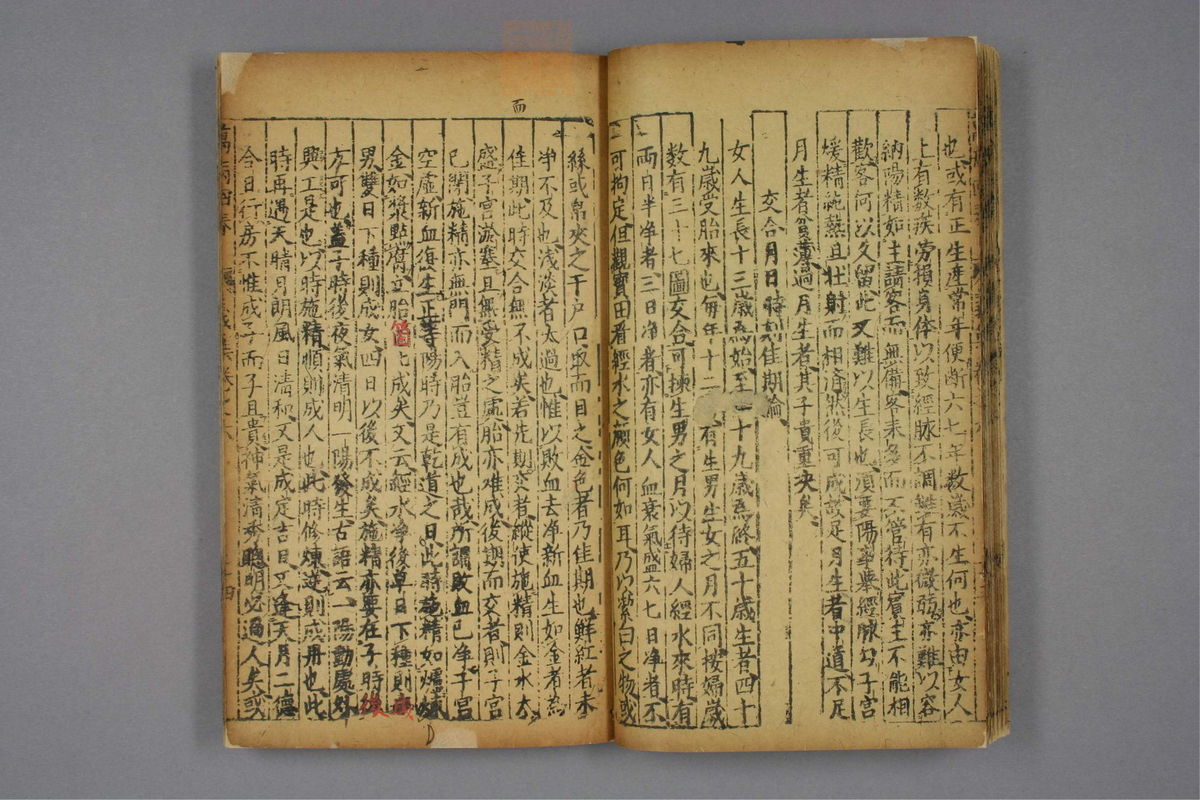 也或有正生産常年便斷六七年数歲不生何也亦由女人
上有数疾勞損身体以致經脉不調雖有亦微弱亦難以容
納陽精如主請客而無備客未多而不管待此賓主不能相
歡客何以久留此又難以生長也須要陽事舉經脉勾子宮
煖精純熱且壯射而相済然後可成故足月生者中道不足
月生者貧薄過月生者其子貴重决矣
交合月日時刻佳期論
女人生長十三歲爲始至四十九歲爲終五十歲生者四十
九歲受胎來也每年十二 有生男生女之月不同按婦歲
数有三十七圖交合可揀生男之月以待婦人經水來時有
兩日半净者三日净者亦有女人血衰氣盛六七日净者不
可拘定但觀寳田看經水之顔色何如耳乃以紫白之物或
絲或帛夾之于户口取而目之金色者乃佳期也鮮紅者未
净不及也浅淡者太過也惟以敗血去净新血生如金者爲
佳期此時交合無不成矣若先期交者縱使施精則金水太
盛子宮淤塞且無受精之處胎亦难成後期而交者則子宮
已閉施精亦無門而入胎豈有成也哉所謂敗血已净子宮
空虚新血復生正等陽時乃是乾道之日此時施精如爐
金如漿點腐 胎 七成矣又云經水净後草日下種則成
男雙日下種則成女四日以後不成矣施精亦要在子時後
方可也蓋子時後夜氣清明一陽發生古語云一陽動處好
興工是也以時施精順則成人也此時修煉逆則成丹也此
時再遇天晴月朗風日清和又是成定吉日又逢天月二德
合日行房不惟成子而子且貴神氣清秀聰明必過人矣或
而